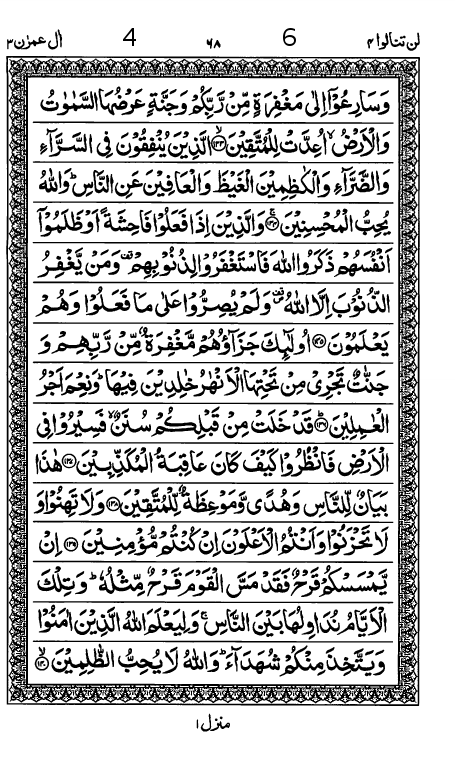 لن تنالوا ۴ 6 ۶۸ 4 اٰل عمرٰن ۳
وَسَارِعُوْۤا اِلٰى مَغْفِرَةٍ مِّنْ رَّبِّكُمْ وَجَنَّةٍ عَرْضُهَا السَّمٰوٰتُ
وَالْاَرْضُ ۙ اُعِدَّتْ لِلْمُتَّقِيْنَ ۙ﴿۱۳۳﴾ الَّذِيْنَ يُنْفِقُوْنَ فِى السَّرَّآءِ
وَالضَّرَّآءِ وَالْكٰظِمِيْنَ الْغَيْظَ وَالْعَافِيْنَ عَنِ النَّاسِ ؕ وَاللّٰهُ
يُحِبُّ الْمُحْسِنِيْنَ ۚ﴿۱۳۴﴾ وَالَّذِيْنَ اِذَا فَعَلُوْا فَاحِشَةً اَوْ ظَلَمُوْۤا
اَنْفُسَهُمْ ذَكَرُوا اللّٰهَ فَاسْتَغْفَرُوْا لِذُنُوْبِهِمْ ۪ وَمَنْ يَّغْفِرُ
الذُّنُوْبَ اِلَّا اللّٰهُ ۪ وَلَمْ يُصِرُّوْا عَلٰى مَا فَعَلُوْا وَهُمْ
يَعْلَمُوْنَ ﴿۱۳۵﴾ اُولٰٓئِكَ جَزَآؤُهُمْ مَّغْفِرَةٌ مِّنْ رَّبِّهِمْ وَ
جَنّٰتٌ تَجْرِىْ مِنْ تَحْتِهَا الْاَنْهٰرُ خٰلِدِيْنَ فِيْهَا ؕ وَنِعْمَ اَجْرُ
الْعٰمِلِيْنَ ؕ﴿۱۳۶﴾ قَدْ خَلَتْ مِنْ قَبْلِكُمْ سُنَنٌ ۙ فَسِيْرُوْا فِى
الْاَرْضِ فَانْظُرُوْا كَيْفَ كَانَ عَاقِبَةُ الْمُكَذِّبِيْنَ ﴿۱۳۷﴾ هٰذَا
بَيَانٌ لِّلنَّاسِ وَهُدًى وَّمَوْعِظَةٌ لِّلْمُتَّقِيْنَ ﴿۱۳۸﴾ وَلَا تَهِنُوْا وَ
لَا تَحْزَنُوْا وَاَنْتُمُ الْاَعْلَوْنَ اِنْ كُنْتُمْ مُّؤْمِنِيْنَ ﴿۱۳۹﴾ اِنْ
يَّمْسَسْكُمْ قَرْحٌ فَقَدْ مَسَّ الْقَوْمَ قَرْحٌ مِّثْلُهٗ ؕ وَتِلْكَ
الْاَيَّامُ نُدَاوِلُهَا بَيْنَ النَّاسِ ۚ وَلِيَعْلَمَ اللّٰهُ الَّذِيْنَ اٰمَنُوْا
وَيَتَّخِذَ مِنْكُمْ شُهَدَآءَ ؕ وَاللّٰهُ لَا يُحِبُّ الظّٰلِمِيْنَ ۙ﴿۱۴۰﴾
منزل ۱